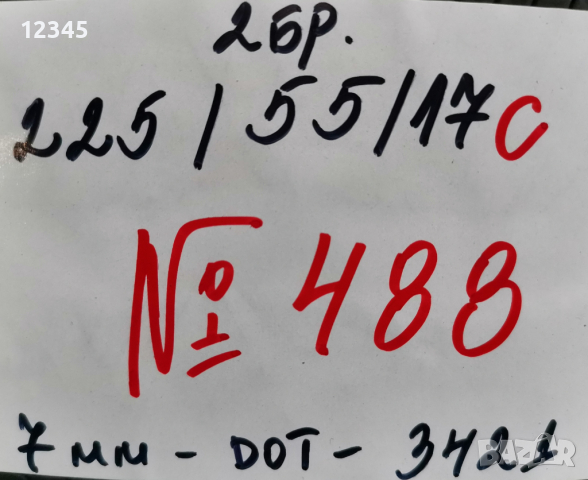 12345
2 бр.
225 / 55 / 17 C
№ 488
7 мм - DOT - 3421
BAZAR